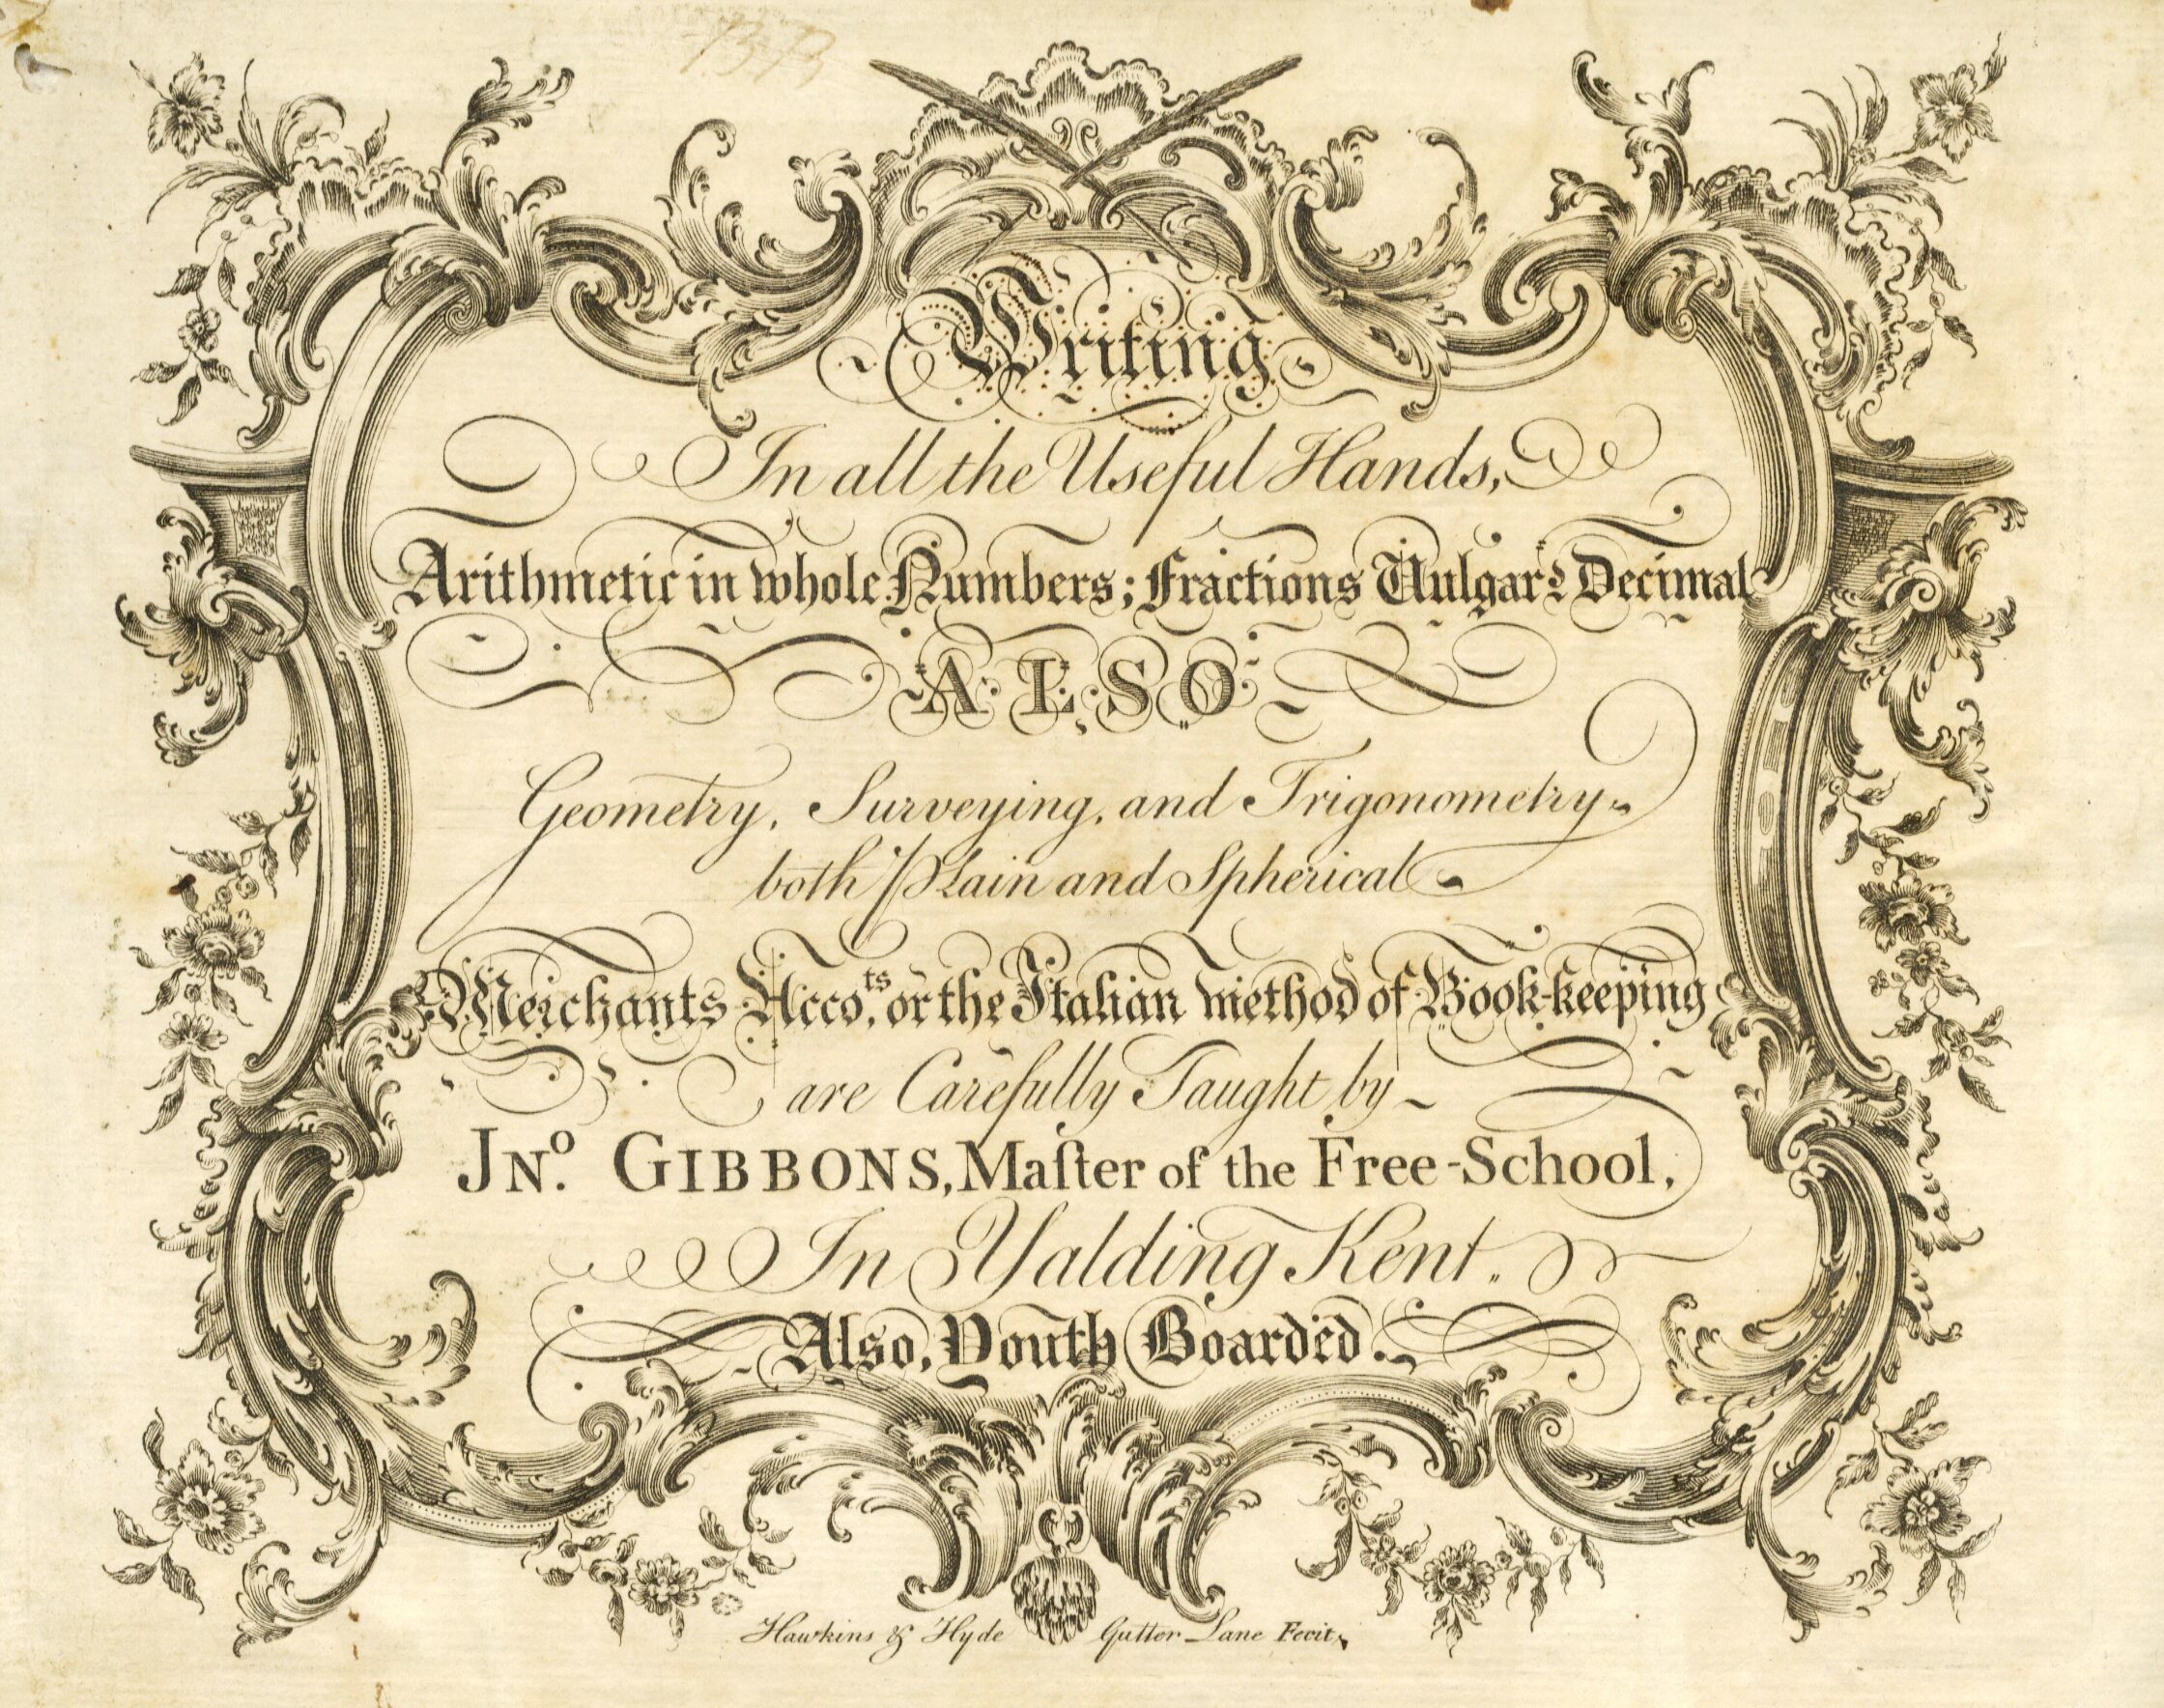 Writing
In all the Useful Hands,
Arithmetic in whole Numbers; Fractions Vulgar & Decimal
ALSO
Geometry, Surveying, and Trigonometry
both Plain and Spherical
Merchants Acco.ts or the Italian method of Book-keeping
are Carefully Taught by
JNº. GIBBONS, Maſter of the Free-School,
In Yalding Kent.
Also, Youth Boarded.
Hawkins & Hyde Gutter Lane Fecit